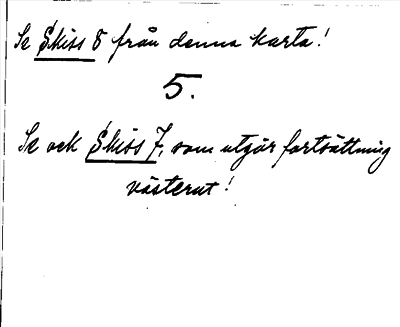 Se Skiss 8 från denna karta!
5.
Se ock Skiss 7, som utgör fortsättning
västerut!